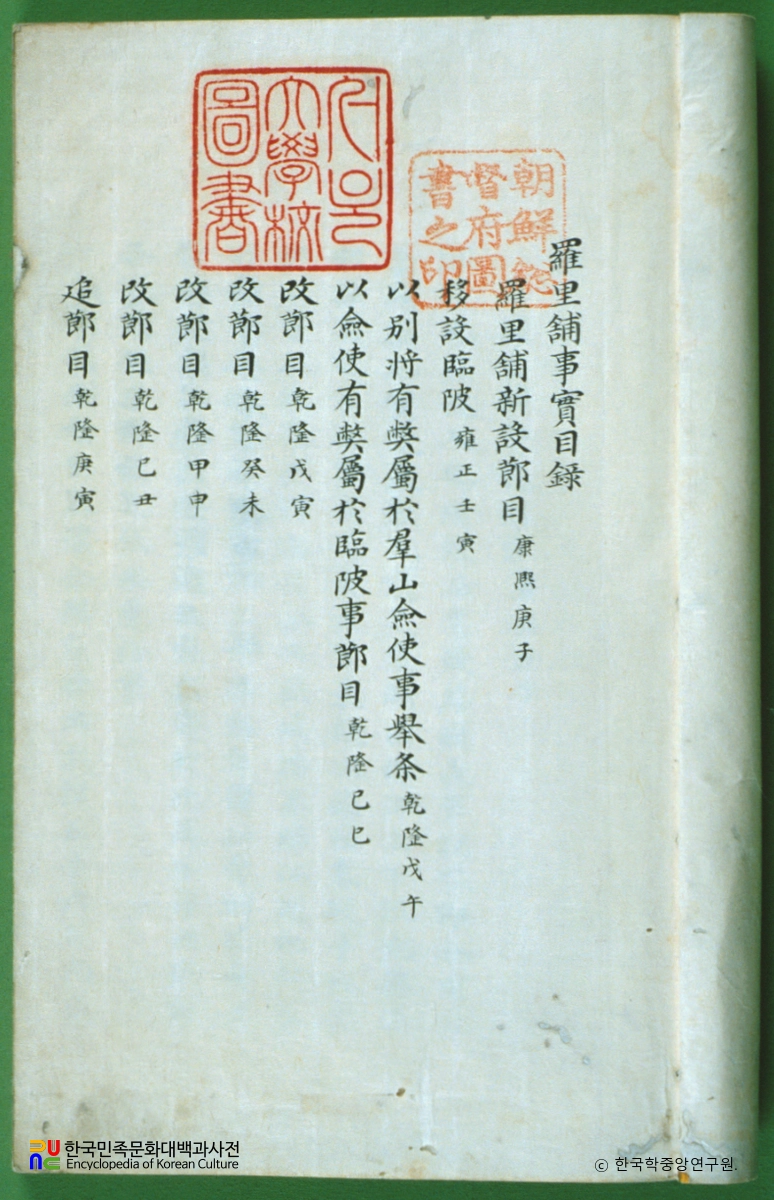 羅里舖事實目錄
羅里舖新設節目 康熙庚子
移設臨陂 雍正壬寅
以別將有獘屬於羣山僉使事舉条 乾隆戊午
以僉使有獘屬於臨陂事節目 乾隆己巳
改節目 乾隆戊寅
改節目 乾隆癸未
改節目 乾隆甲申
改節目 乾隆己丑
追節目 乾隆庚寅
朝鮮總
督府圖
書之印
大學校
圖書
한국민족문화대백과사전
Encyclopedia of Korean Culture
© 한국학중앙연구원.